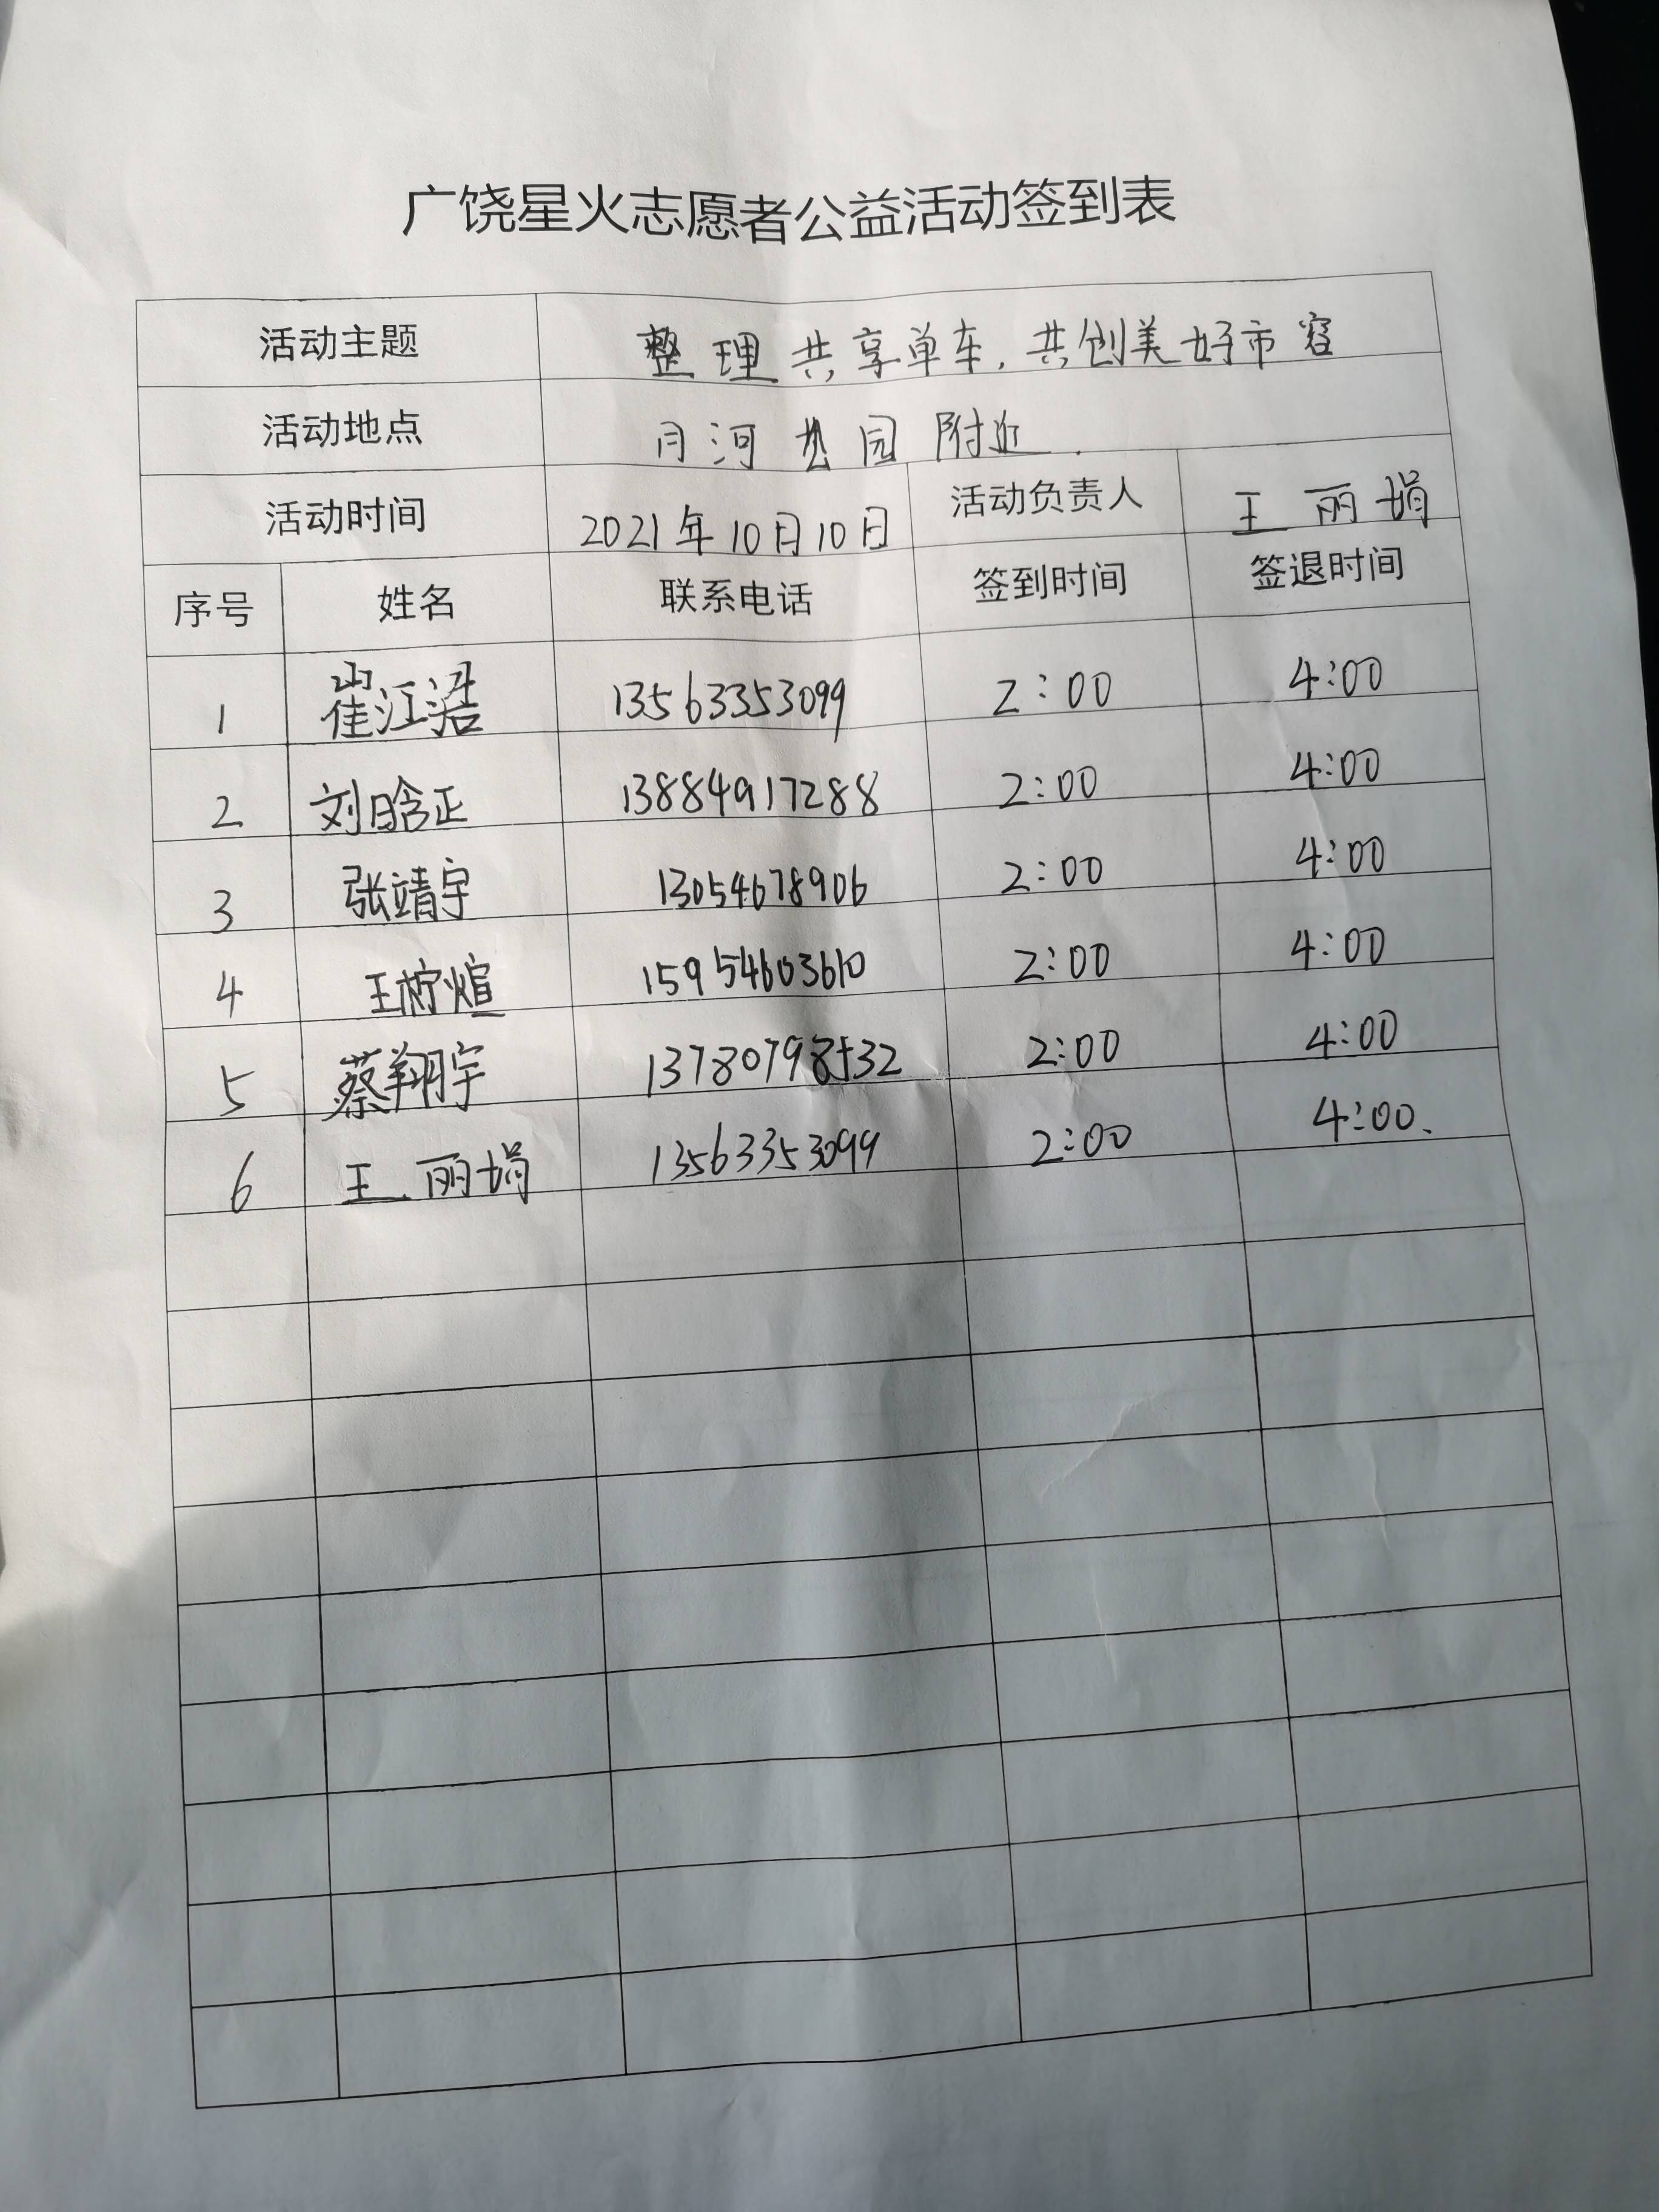 广饶星火志愿者公益活动签到表
活动主题 整理共享单车,共创美好市容
活动地点 月河公园附近.
活动时间 2021年10月10日 活动负责人 王丽娟
序号 姓名 联系电话 签到时间 签退时间
1 崔江浩 13563353099 2:00 4:00
2 刘晗正 13884917288 2:00 4:00
3 张靖宇 13054678906 2:00 4:00
4 王柠煊 15954603610 2:00 4:00
5 蔡翔宇 13780798532 2:00 4:00
6 王丽娟 13563353099 2:00 4:00.